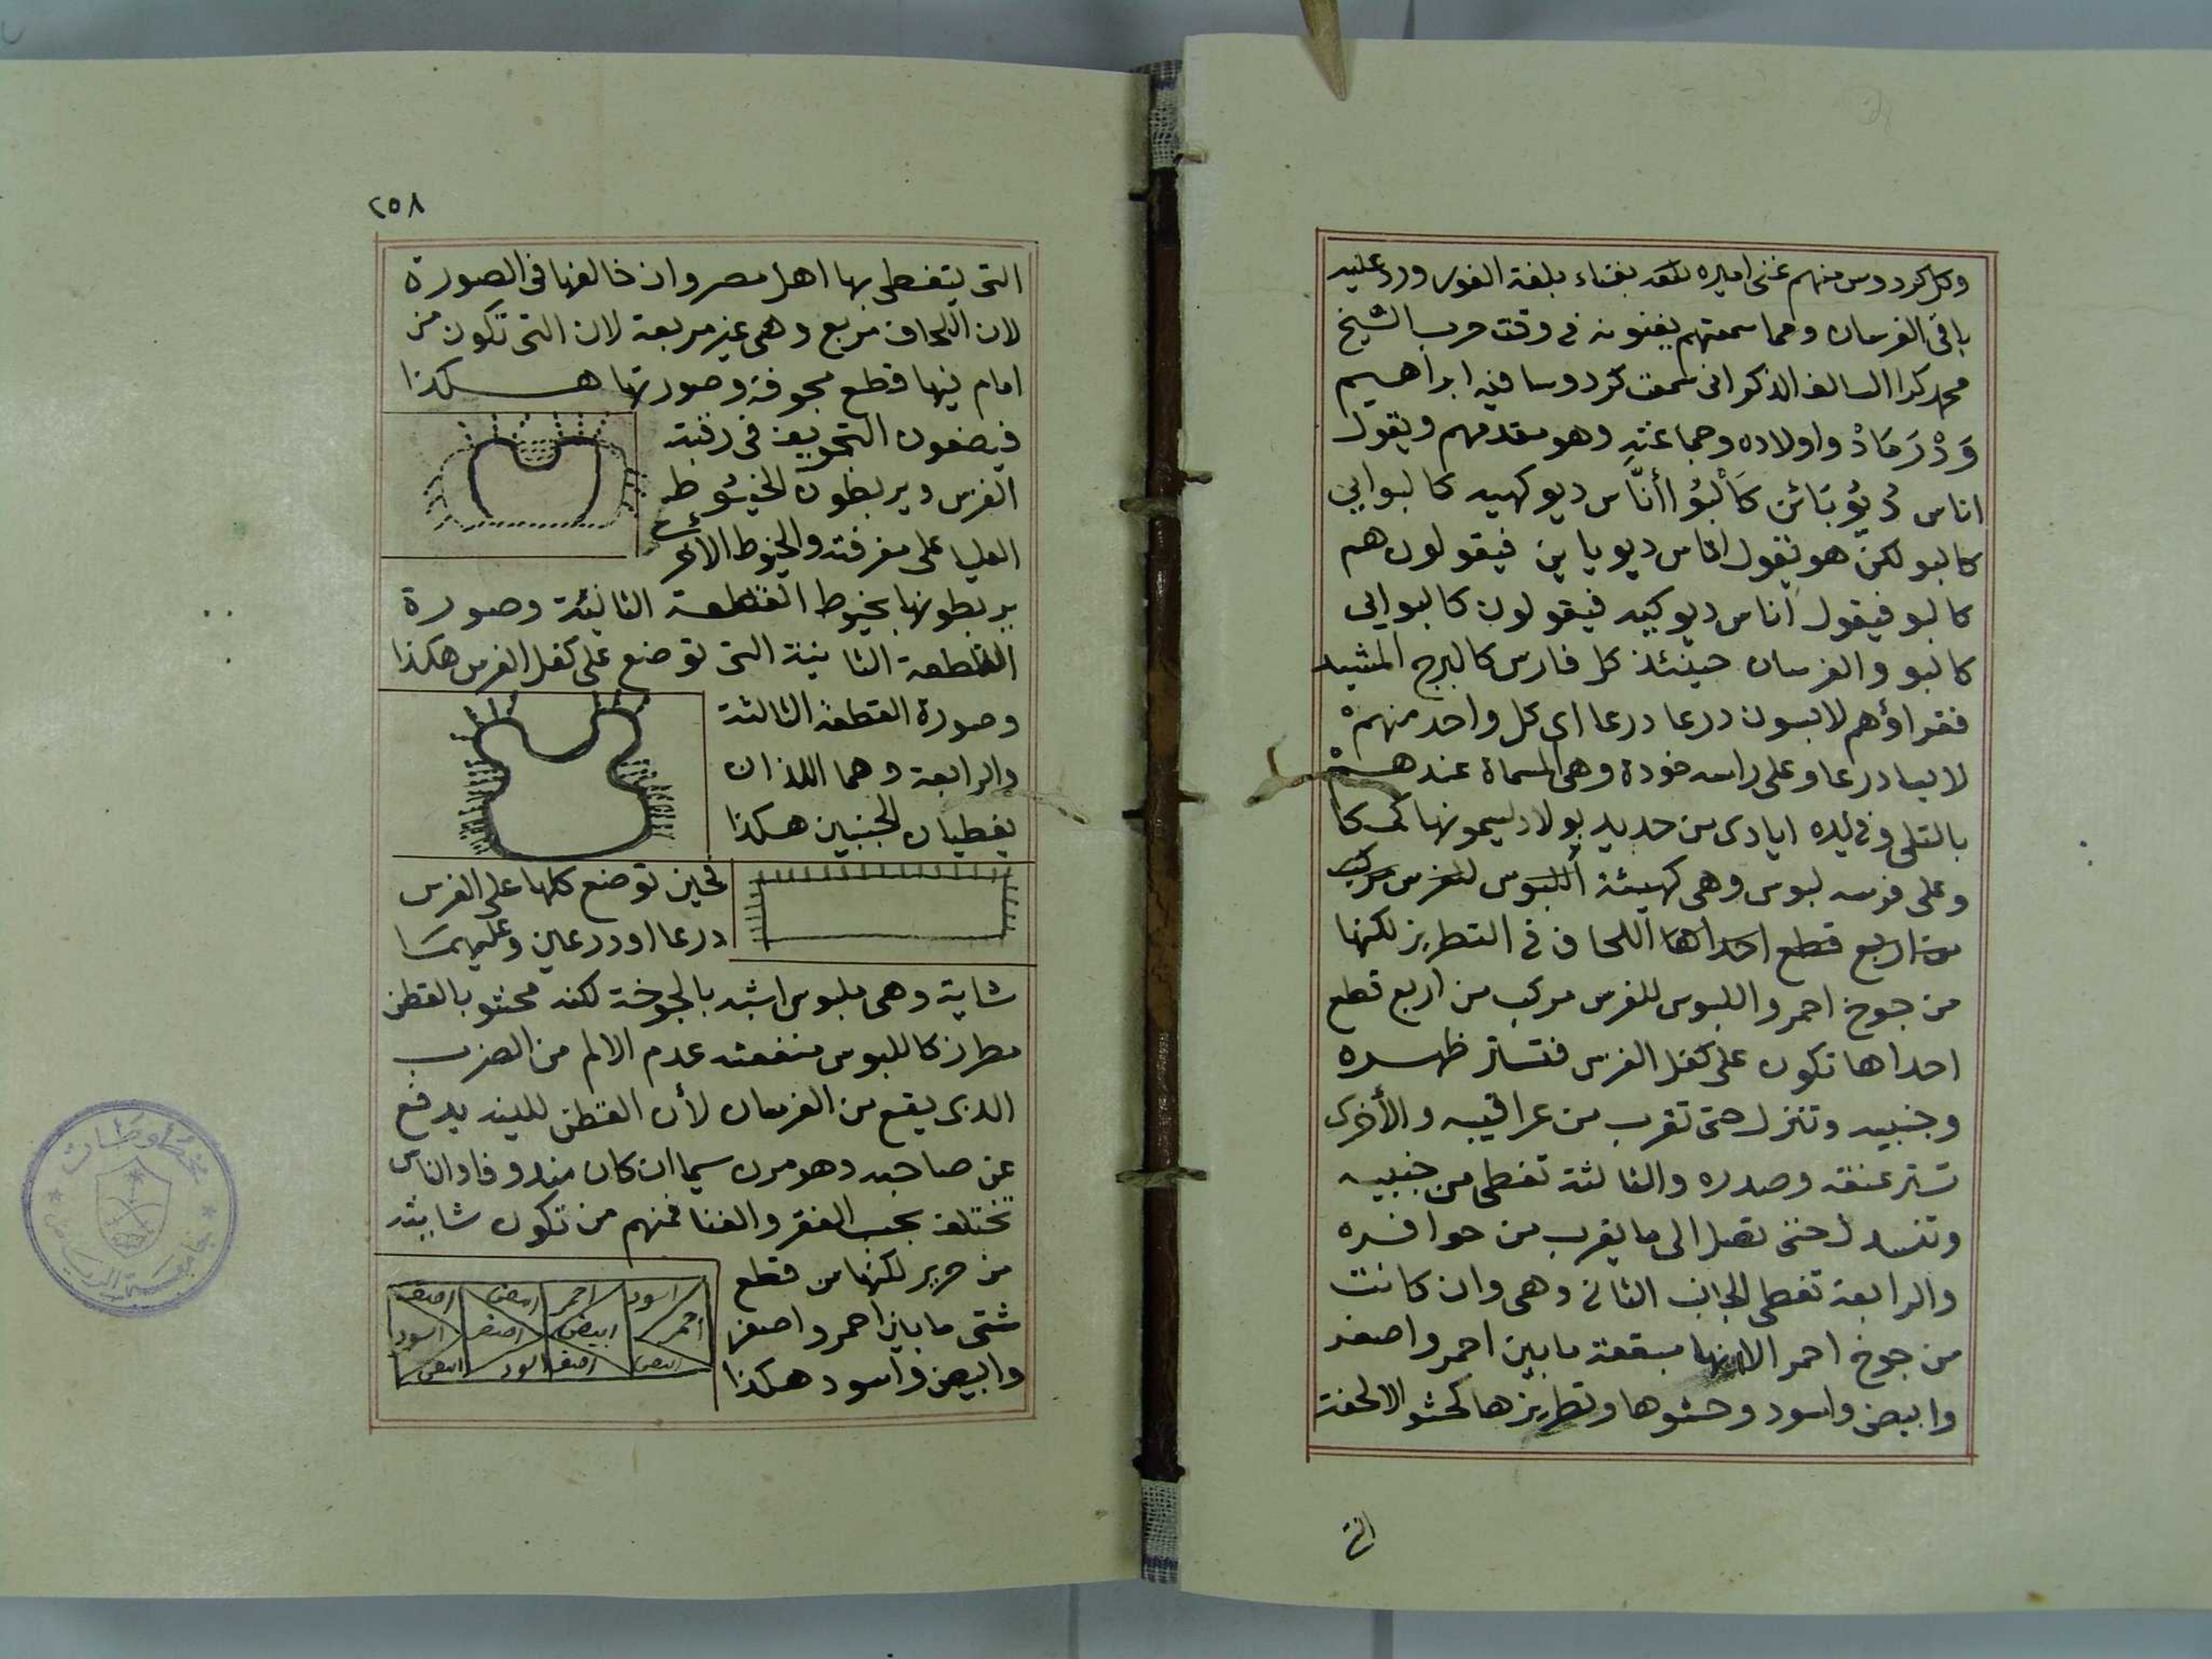 وكل كردوس منهم غنى اميره بلغته بغناء بلغة الفور ورد عليه
باقى الفرسان ومما سمعتهم يغنونه فى وقت حرب الشيخ
محمد كرا السالف الذكر انى سمعت كردوسا فيه ابراهيم
وَدْ رَمَادْ واولاده وجماعته وهو مقدمهم ويقول
اناس دُيُؤ بَاىْن كَالْبُوْ اأنّاس ديو كبيه كالبوايى
كالبو لكن هو يقول اناس ديو باين فيقولون هم
كالبو فيقول اناس ديو كبيه فيقولون كالبوايى
كالبو والفرسان حينئذ كل فارس كالبرج المشيد
فقراؤهم لابسون درعا درعا اى كل واحد منهم
لابسا درعا وعلى راسه خودة وهى المسماة عندهم
بالتلى وفى يده ايادى من حديد بولاد يسمونها كم كا
وعلى فرسه لبوس وهى كهيئة اللبوس للفرس مركب
من اربع قطع احداها اللحاف فى التطريز لكنها
من جوخ احمر واللبوس للفرس مركب من اربع قطع
احداها تكون على كفل الفرس فتستر ظهره
وجنبيه وتنزل حتى تقرب من عراقيبه والأخرى
تستر عنقه وصدره والثالثة تغطى من جنبيه
وتنسدل حتى تصل الى ما يقرب من حوافره
والرابعة تغطى الجانب الثانى وهى وان كانت
من جوخ احمر الا انها مبقعة ما بين احمر واصفر
وابيض واسود وحشوها وتطريزها كحشو الالحفة
التى
٢٥٨
التى يتغطى بها اهل مصر وان خالفها فى الصورة
لان اللحاف مربع وهى غير مربعة لان التى تكون من
امام فيها قطع مجوفة وصورتها هكذا
فيضعون التجويف فى رقبة
الفرس ويربطون الخيوط
العليا على معرفته والخيوط الأخر
يربطونها بخيوط القطعة الثانية وصورة
القطعة الثانية التى توضع على كفل الفرس هكذا
وصورة القطعة الثالثة
والرابعة وهما اللذان
يغطيان الجنبين هكذا
فحين توضع كلها على الفرس
درعا اودرعين وعليهما
شاية وهى ملبوس اشبه بالجوخة لكنه محشو بالقطن
مطرز كاللبوس منفعته عدم الالم من الضرب
الذى يقع من الفرسان لأن القطن للينه يدفع
عن صاحبه وهو مرن سيما ان كان مندوفا والناس
تختلف بحسب الفقر والغنا فمنهم من تكون شايته
من حرير لكنها من قطع
شتى ما بين احمر واصفر
وابيض واسود هكذا
اسود احمر ابيض اصفر
احمر ابيض اصفر اسود
ابيض اصفر اسود ابيض
مخطوطات
جامعة الرياض